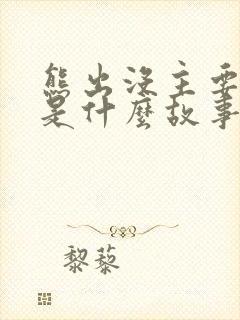 熊出沒主要
是什麼故事
黎藜